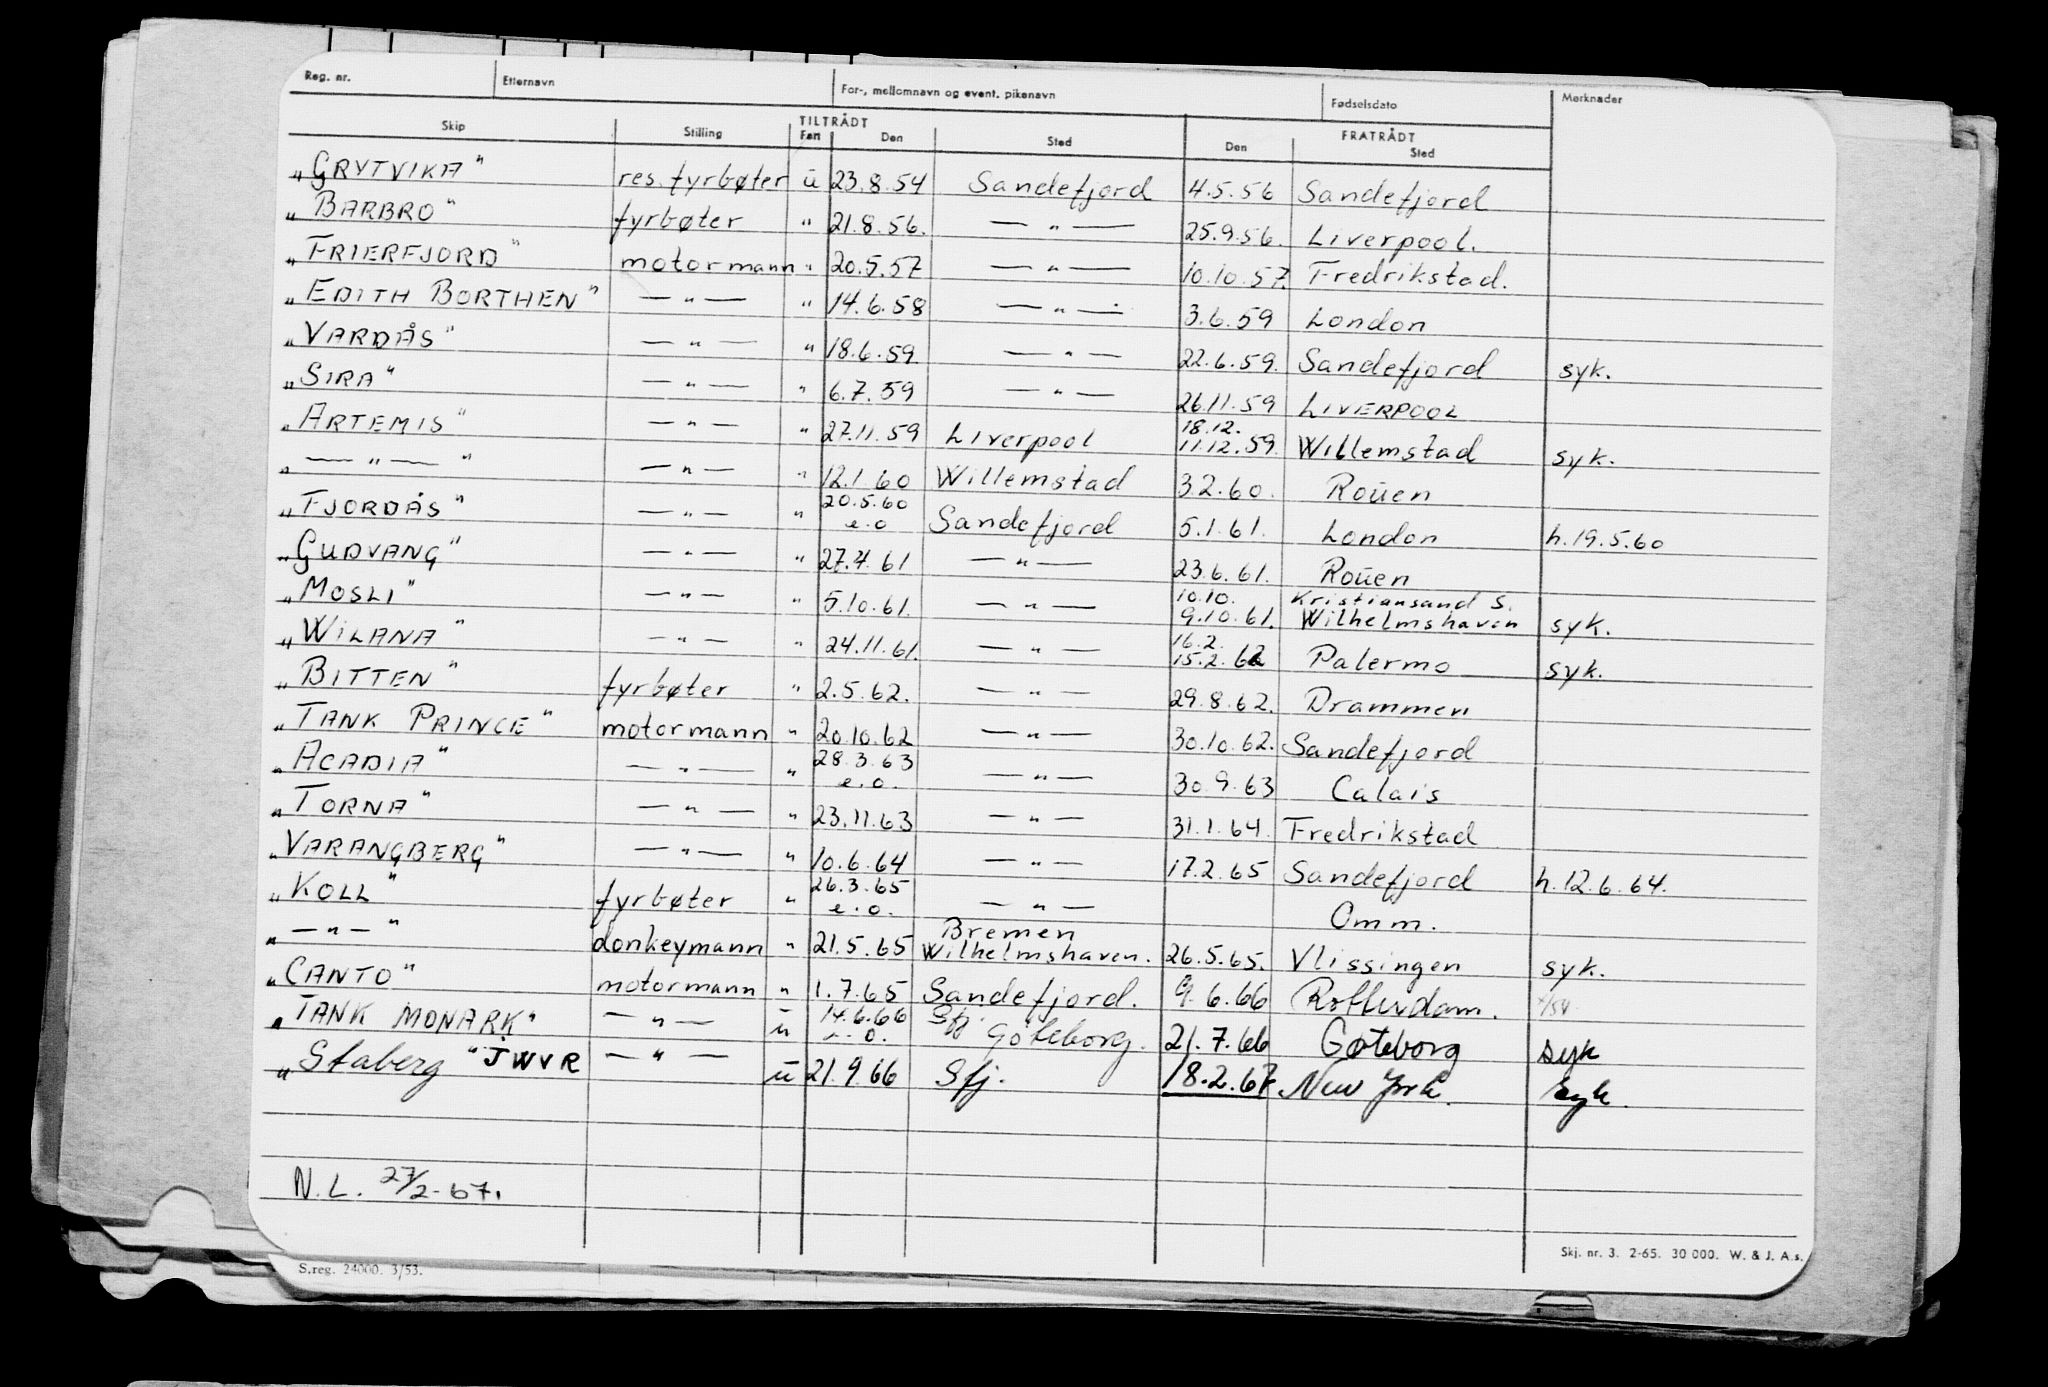 Reg. nr. Etternavn For-, mellomnavn og event. pikenavn Fødselsdato Merknader
TILTRÅDT FRATRÅDT
Skip Stilling Fart Den Sted Den Sted
„GRYTVIKA" res. fyrbøter ū 23.8.54 Sandefjord 4.5.56 Sandefjord
„BARBRO" fyrbøter " 21.8.56. — " — 25.9.56. Liverpool.
„FRIERFJORD" motormann " 20.5.57 — " — 10.10.57. Fredrikstad.
„EDITH BORTHEN" — " — " 14.6.58 — " — 3.6.59 London
„VARDÅS" — " — " 18.6.59. — " — 22.6.59. Sandefjord syk.
„SIRA" — " — " 6.7.59 — " — 26.11.59 LIVERPOOL
„ARTEMIS" — " — " 27.11.59 Liverpool 18.12. 11.12.59. Willemstad syk.
„— " — " — " — " 12.1.60 Willemstad 3.2.60. Roūen
„FJORDÅS" — " — " 20.5.60 e.o Sandefjord 5.1.61. London h.19.5.60
„GUDVANG" — " — " 27.4.61 — " — 23.6.61. Roūen
„MOSLI" — " — " 5.10.61. — " — 10.10. 9.10.61. Kristiansand S. Wilhelmshaven syk.
„WILANA" — " — " 24.11.61. — " — 16.2. 15.2.62 Palermo syk.
„BITTEN" fyrbøter " 2.5.62. — " — 29.8.62. Drammen
„TANK PRINCE" motormann " 20.10.62 — " — 30.10.62. Sandefjord
„ACADIA" — " — " 28.3.63 e.o. — " — 30.9.63 Calais
„TORNA" — " — " 23.11.63 — " — 31.1.64. Fredrikstad
„VARANGBERG" — " — " 10.6.64 — " — 17.2.65 Sandefjord h.12.6.64.
„KOLL" fyrbøter " 26.3.65 e.o. — " — Omm.
„— " — " donkeymann " 21.5.65 Bremen Wilhelmshaven. 26.5.65. Vlissingen syk.
„CANTO" motormann " 1.7.65 Sandefjord. 9.6.66 Rotterdam.
„TANK MONARK" — " — ū 14.6.66 e.o. Sfj. Göteborg. 21.7.66 Gøteborg syk
„Staberg" JWVR — " — ū 21.9.66 Sfj. 18.2.67. New York. syk.
N.L. 27/2-67.
Skj. nr. 3. 2-65. 30 000. W. & J. A.s.
S.reg. 24000. 3/53.